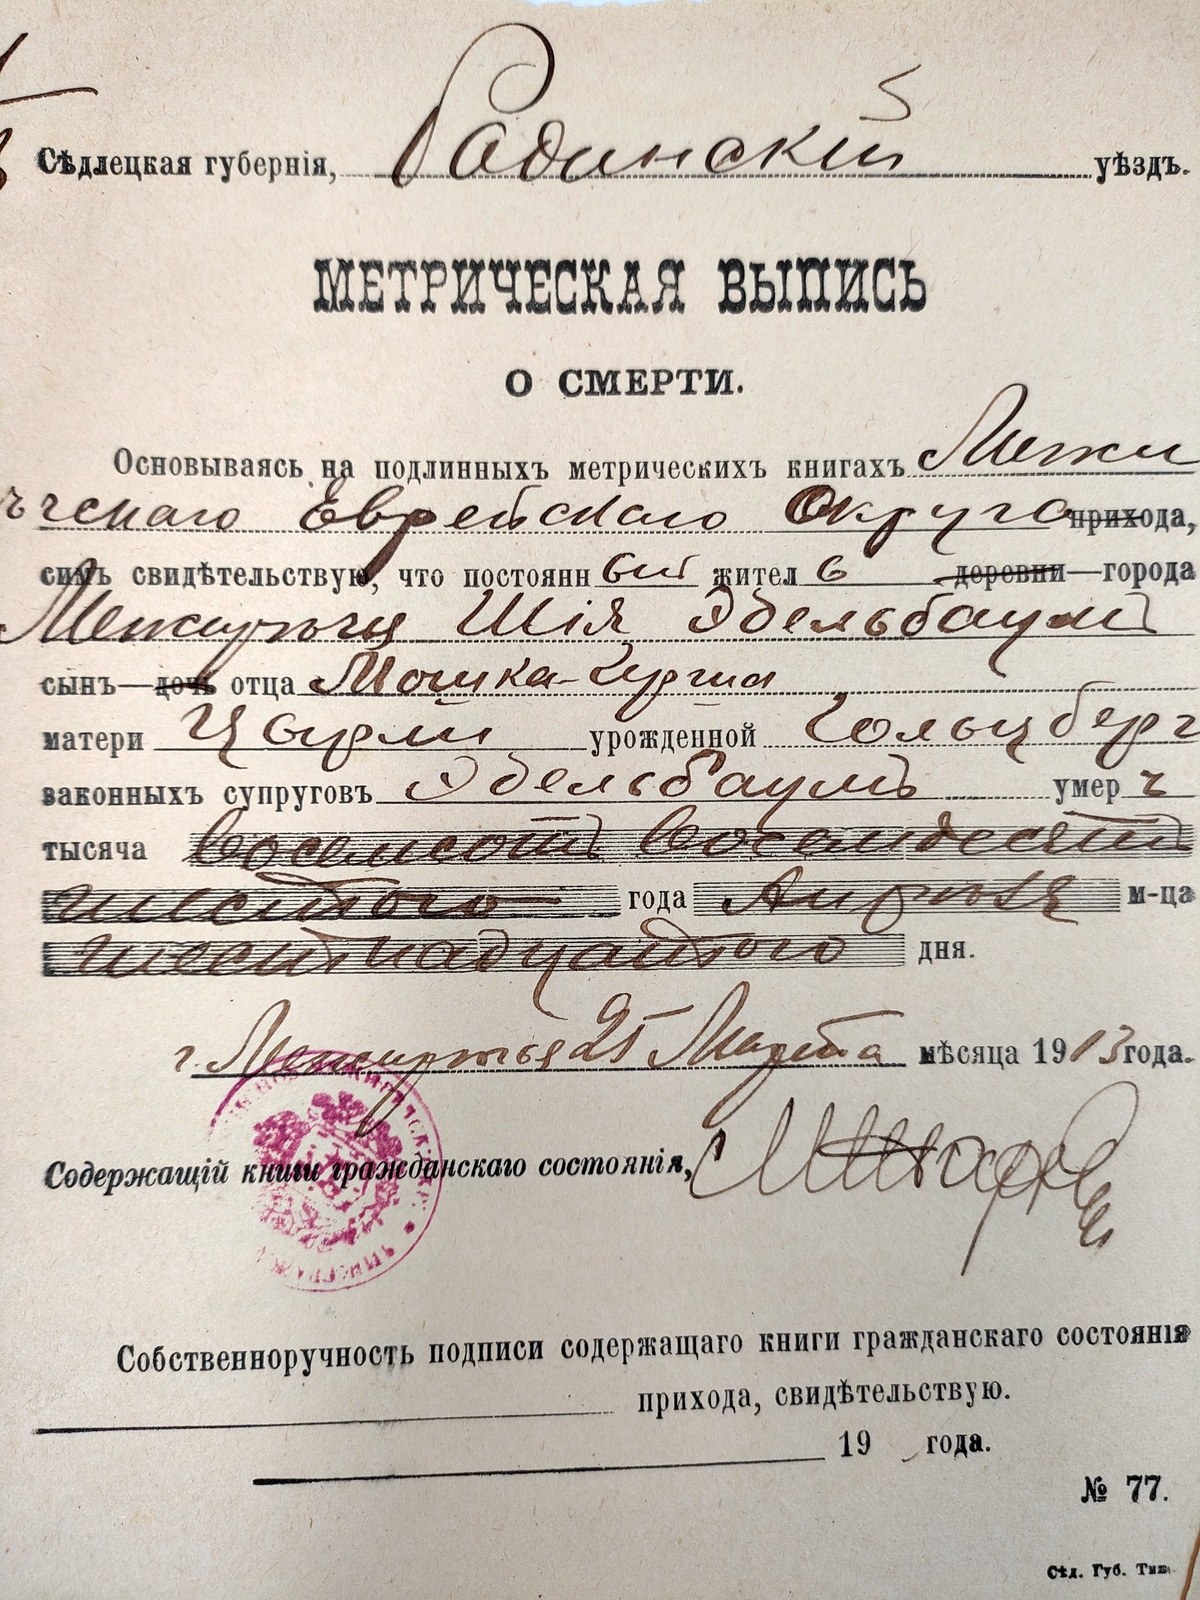 Сѣдлецкая губернія, Радинскій уѣздъ.
МЕТРИЧЕСКАЯ ВЫПИСЬ
О СМЕРТИ.
Основываясь на подлинныхъ метрическихъ книгахъ Межи
ѣчскаго Еврейскаго Округа прихода,
симъ свидѣтельствую, что постоянный жител деревни—города
Межирѣчья Шія Эдельбаумъ
сынъ—дочь отца Мошка-
матери урожденной Гольцберг
законныхъ супруговъ Эдельбаумъ умер ъ
тысяча восемсотъ восемдесятъ
шестого года Апрѣля м-ца
шестнадцатого дня.
г. Межирѣчья 25 Марта мѣсяца 1913 года.
Содержащій книги гражданскаго состоянія,
Собственноручность подписи содержащаго книги гражданскаго состоянія
прихода, свидѣтельствую.
19 года.
№ 77.
Сѣд. Губ. Тип.